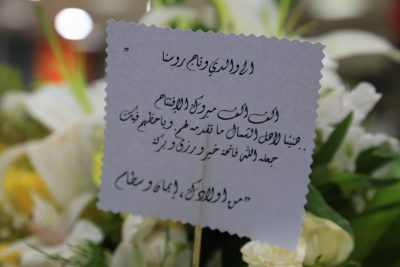 " الى والدي وتاج روسنا
ألف ألف مبروك الإفتتاح
هنيئا لأهل الشمال ما تقدمه لهم، وياحظهم فيك..
جعله الله فاتحة خير ورزق وبركة
من اولادك، ايمان وسطام"